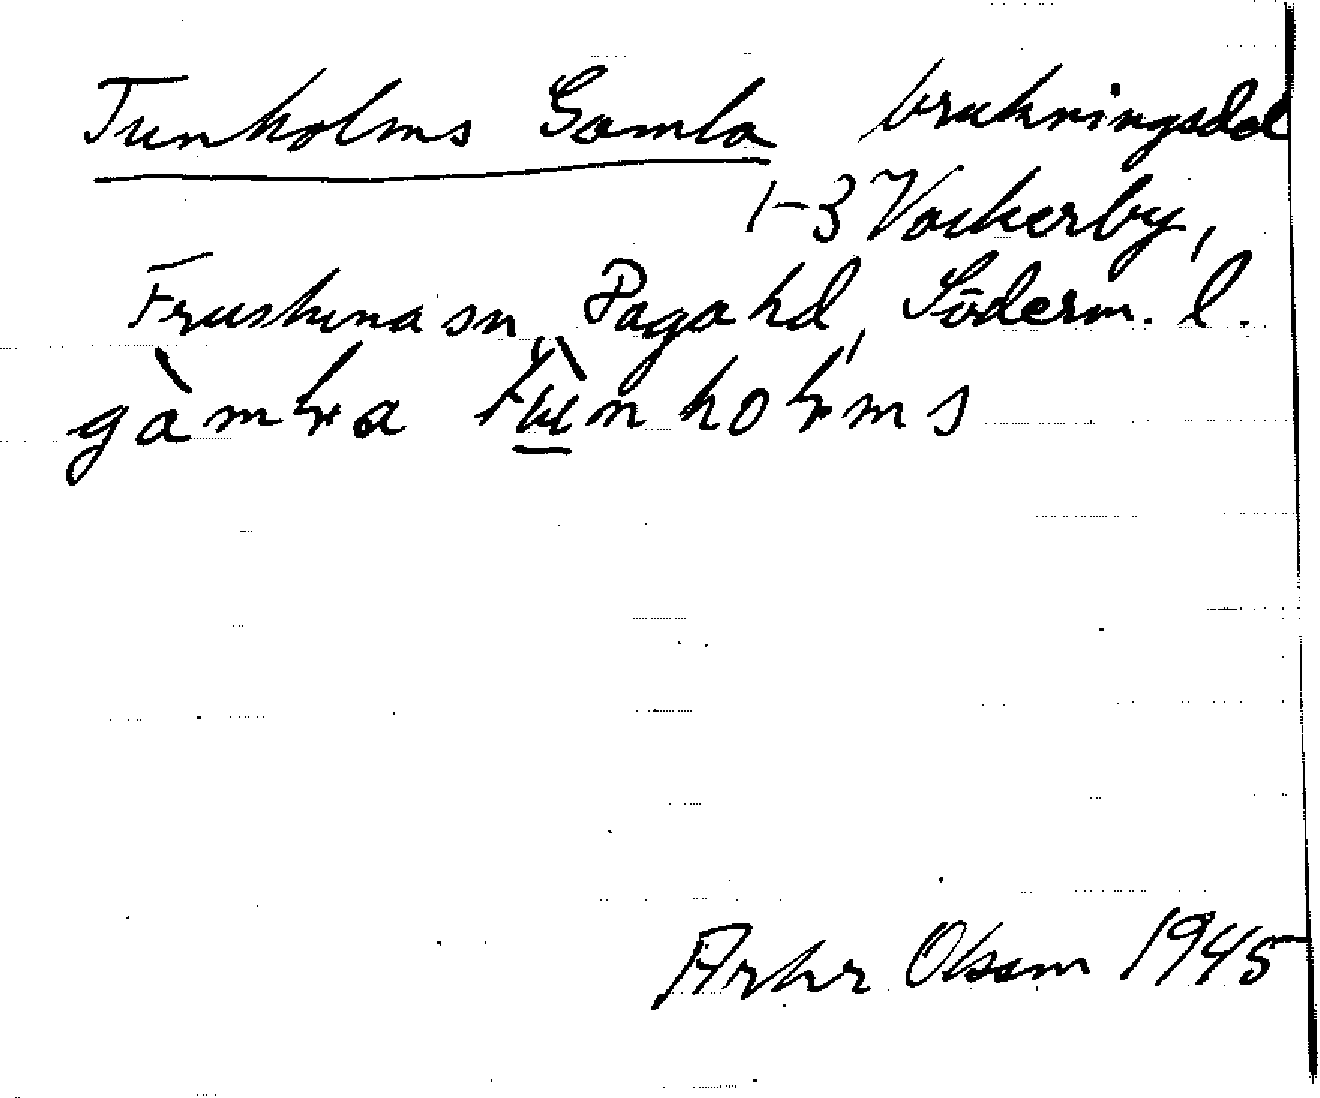 Tunholms Gamla brukningsdel
1-3 Vackerby,
Frustuna sn, Daga hd, Söderm. l.
gàmla tùnholms
Arthur Olsson 1945